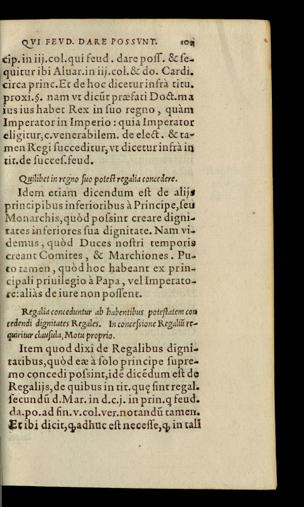 QVI FEVD. DARE POSSVNT.
cip. in iij. col. qui feud. dare poss. & se-
quitur ibi Aluar. in iij. col. & do. Cardi.
circa princ. Et de hoc dicetur infrà titu.
proxi. §. nam vt dicũt præfati Doct. ma
ius ius habet Rex in suo regno, quàm
Imperator in Imperio: quia Imperator
eligitur, c. venerabilem. de elect. & ta-
men Regi succeditur, vt dicetur infrà in
tit. de succes. feud.
Quilibet in regno suo potest regalia concedere.
Idem etiam dicendum est de alijs
principibus inferioribus à Principe, seu
Monarchis, quòd possint creare digni-
tates inferiores sua dignitate. Nam vi-
demus, quòd Duces nostri temporis
creant Comites, & Marchiones. Pu-
to tamen, quòd hoc habeant ex prin-
cipali priuilegio à Papa, vel Imperato-
re: aliàs de iure non possent.
Regalia conceduntur ab habentibus potestatem con
cedendi dignitates Regales. In concessione Regaliũ re-
quiritur clausula, Motu proprio.
Item quod dixi de Regalibus digni-
tatibus, quòd eæ à solo principe supre-
mo concedi possint, idẽ dicẽdum est de
Regalijs, de quibus in tit. quę sint regal.
secundũ d. Mar. in d. c. j. in prin. q feud.
da. po. ad fin. v. col. ver. notandũ tamen.
Et ibi dicit, q, adhuc est necesse, q, in tali